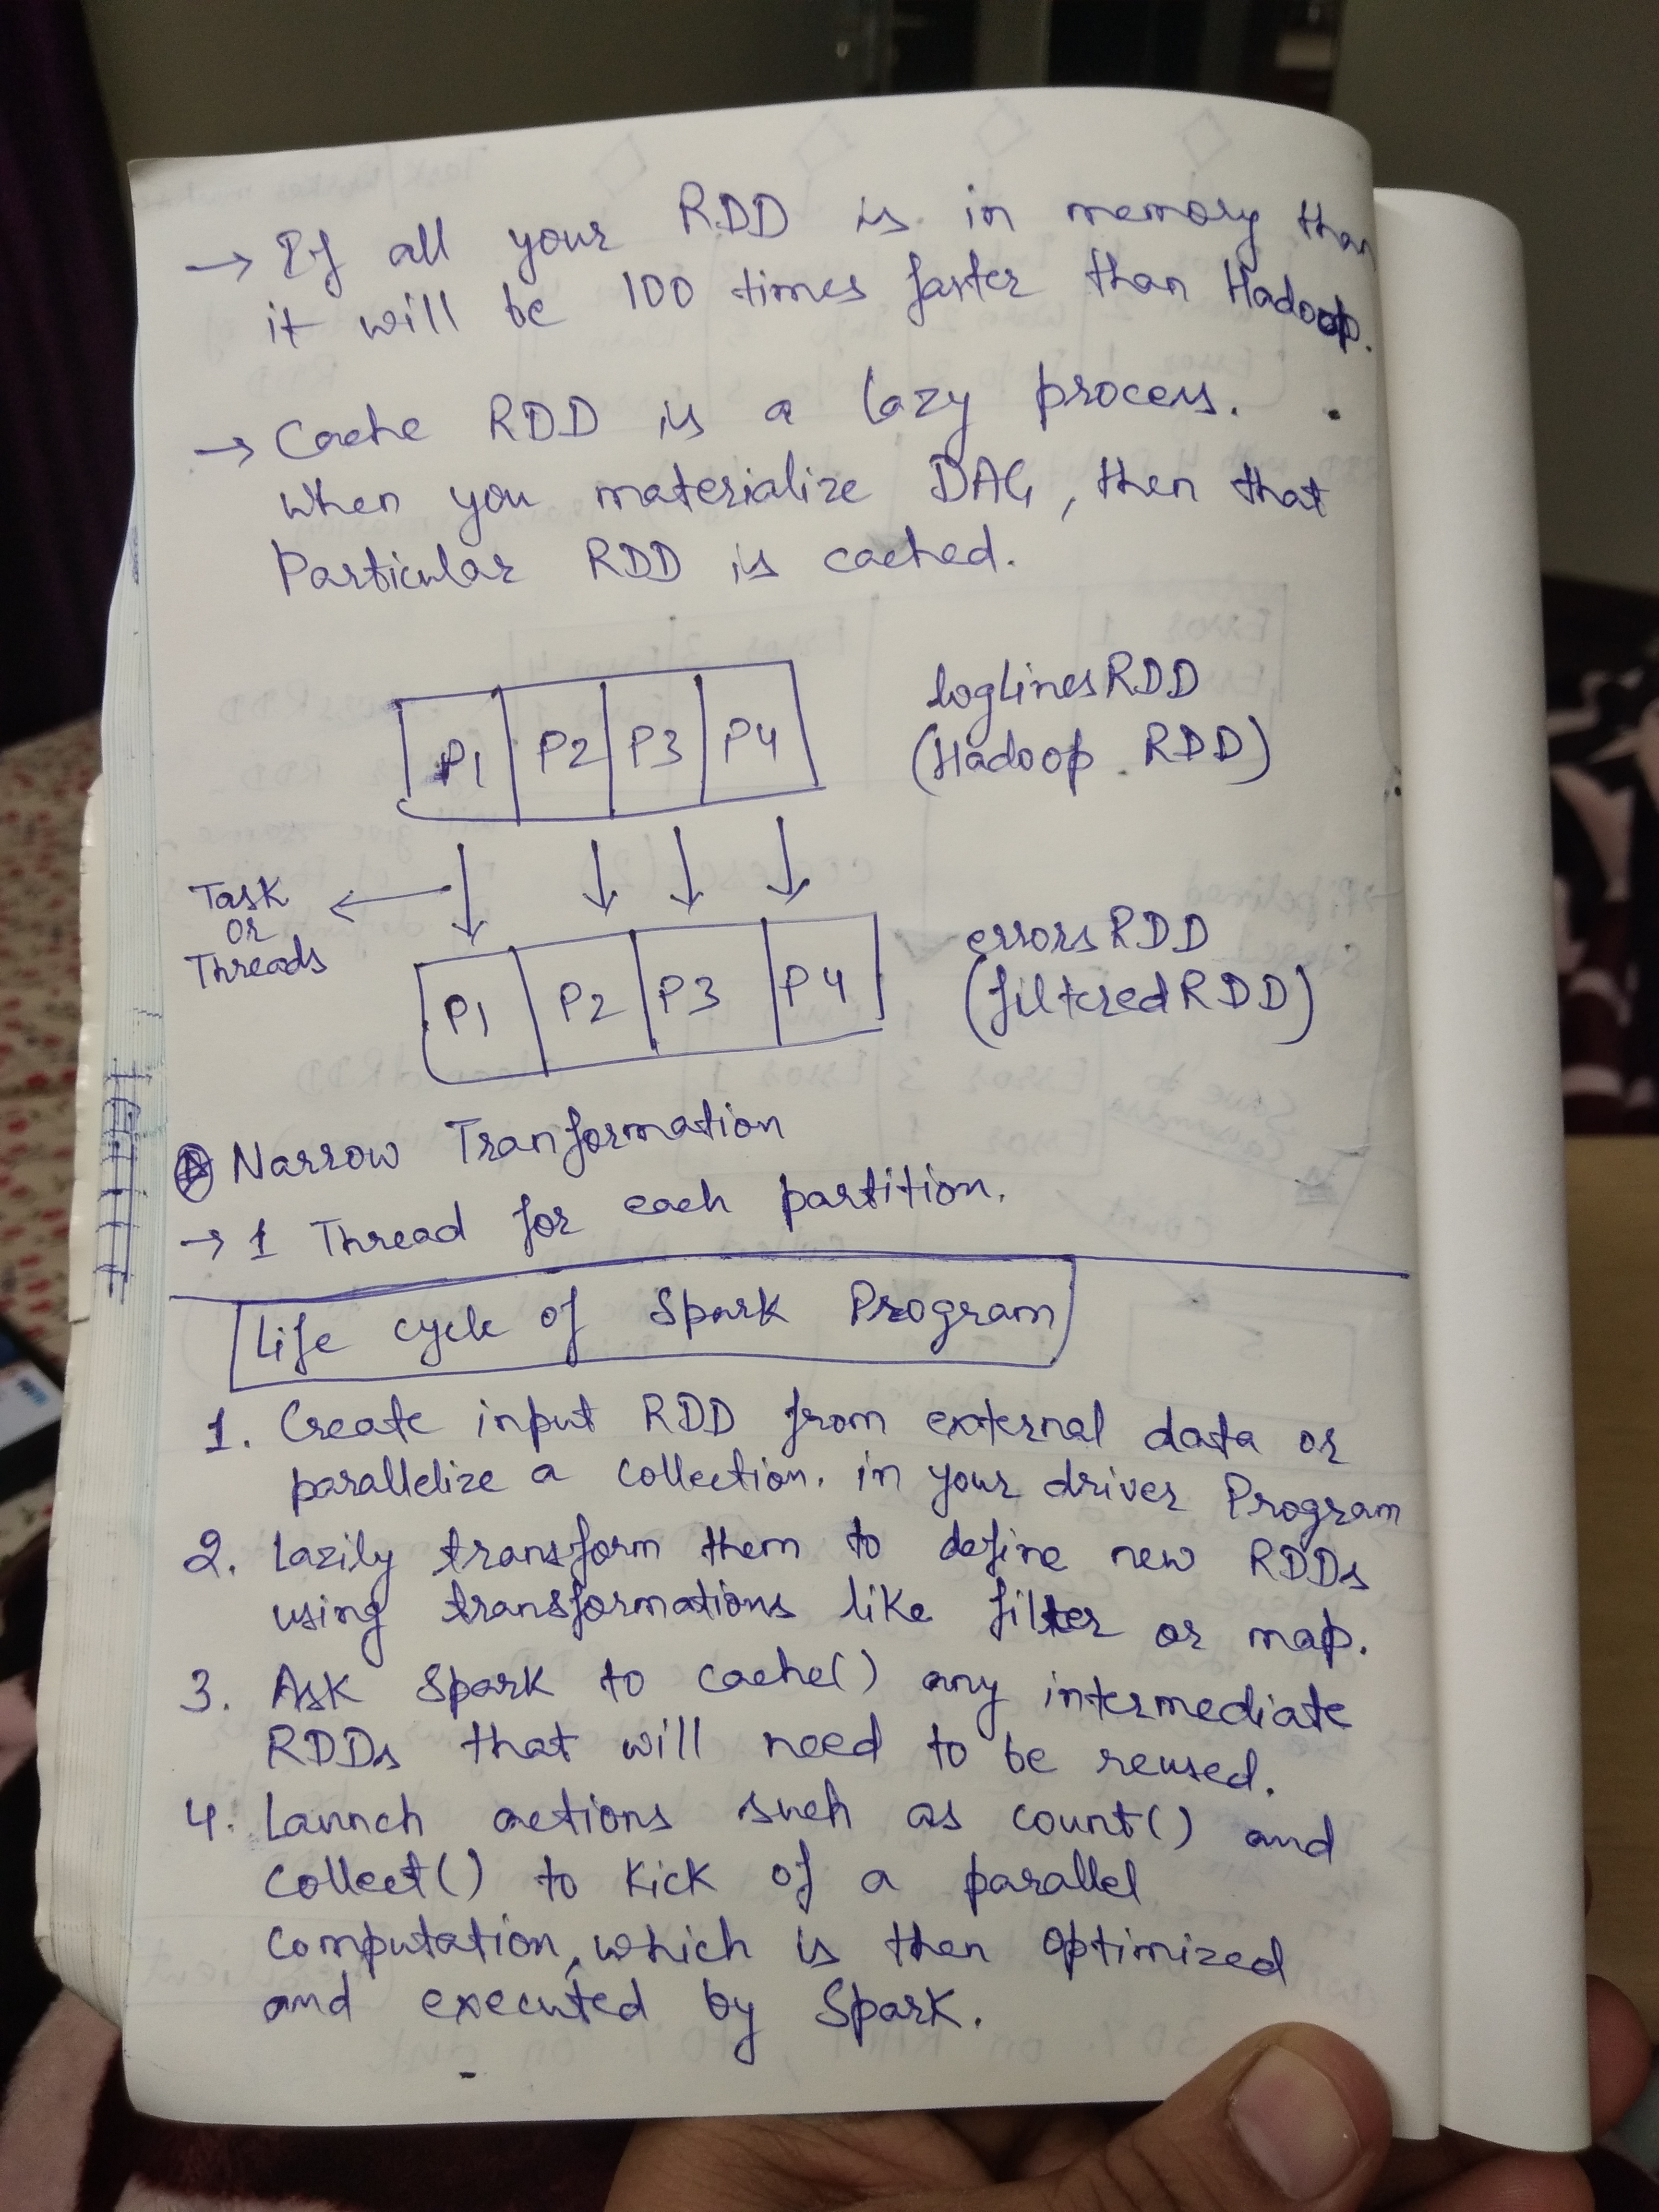 → If all your RDD is in memory than
it will be 100 times faster than Hadoop.
→ Cache RDD is a lazy process.
when you materialize DAG, then that
Particular RDD is cached.
P1 P2 P3 P4
loglinesRDD
(Hadoop RDD)
Task
or
Threads
P1 P2 P3 P4
errorsRDD
(filteredRDD)
Narrow Tranformation
→ 1 Thread for each partition.
Life cycle of Spark Program
1. Create input RDD from external data or
parallelize a collection. in your driver Program
2. Lazily transform them to define new RDDs
using transformations like filter or map.
3. Ask Spark to cache() any intermediate
RDDs that will need to be reused.
4. Launch actions such as count() and
collect() to kick of a parallel
computation, which is then optimized
and executed by Spark.